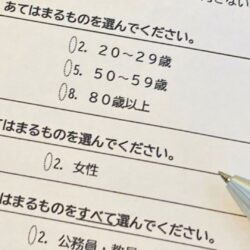 あてはまるものを選んでください。
2. 20～29歳
5. 50～59歳
8. 80歳以上
てはまるものを選んでください。
2. 女性
まるものをすべて選んでください。
2. 公務員・教